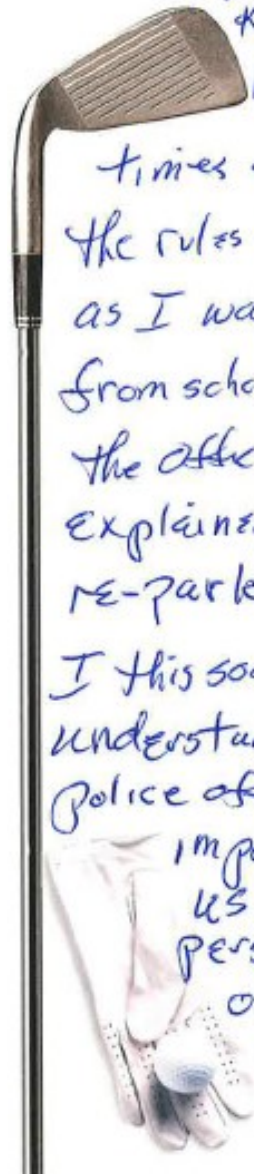 K
times
the rules
as I wa
from scho
the offic
explaine
re-parke
I this soc
understa
police of
impo
us
pers
o